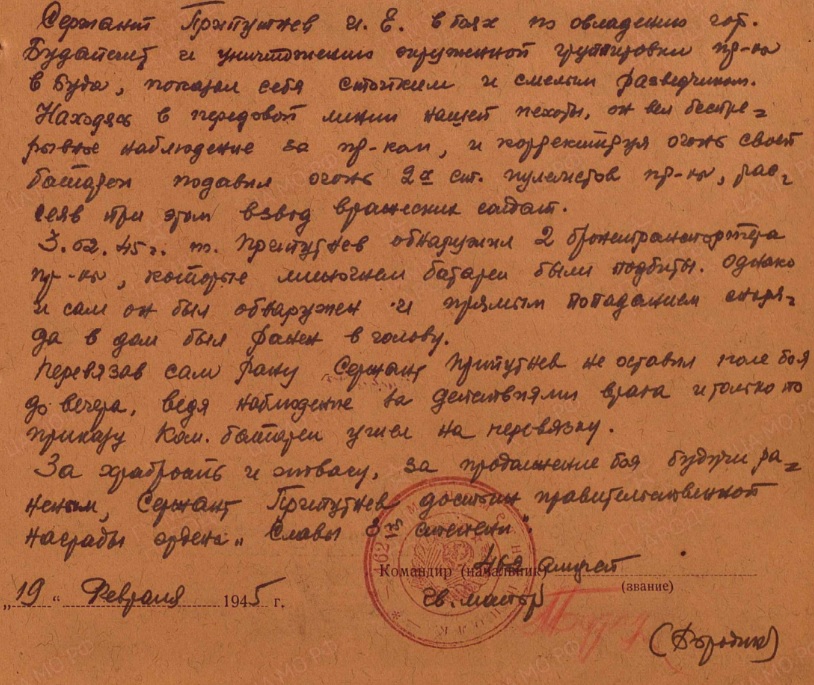 Сержант Припутнев И. Е. в боях по овладению гор.
Будапешт и уничтожению окруженной группировки пр-ка
в Буда, показал себя стойким и смелым разведчиком.
Находясь в передовой линии нашей пехоты, он вел беспре-
рывное наблюдение за пр-ком, и корректируя огонь своей
батареи подавил огонь 2х ст. пулеметов пр-ка, рас-
сеяв при этом взвод вражеских солдат.
3.02.45 г. т. Припутнев обнаружил 2 бронетранспортера
пр-ка, которые батареи были подбиты. Однако
и сам он был обнаружен и прямым попаданием снаря-
да в дом был ранен в голову.
Перевязав сам рану Сержант Припутнев не оставил поле боя
до вечера, ведя наблюдение за действиями врага и только по
приказу Ком. батареи ушел на перевязку.
За храбрость и отвагу, за продолжение боя будучи ра-
неным, Сержант Припутнев достоин правительственной
награды ордена „Славы 3 степени"
Командир (начальник) 462
(звание)
„19" Февраля 1945 г. гв. майор